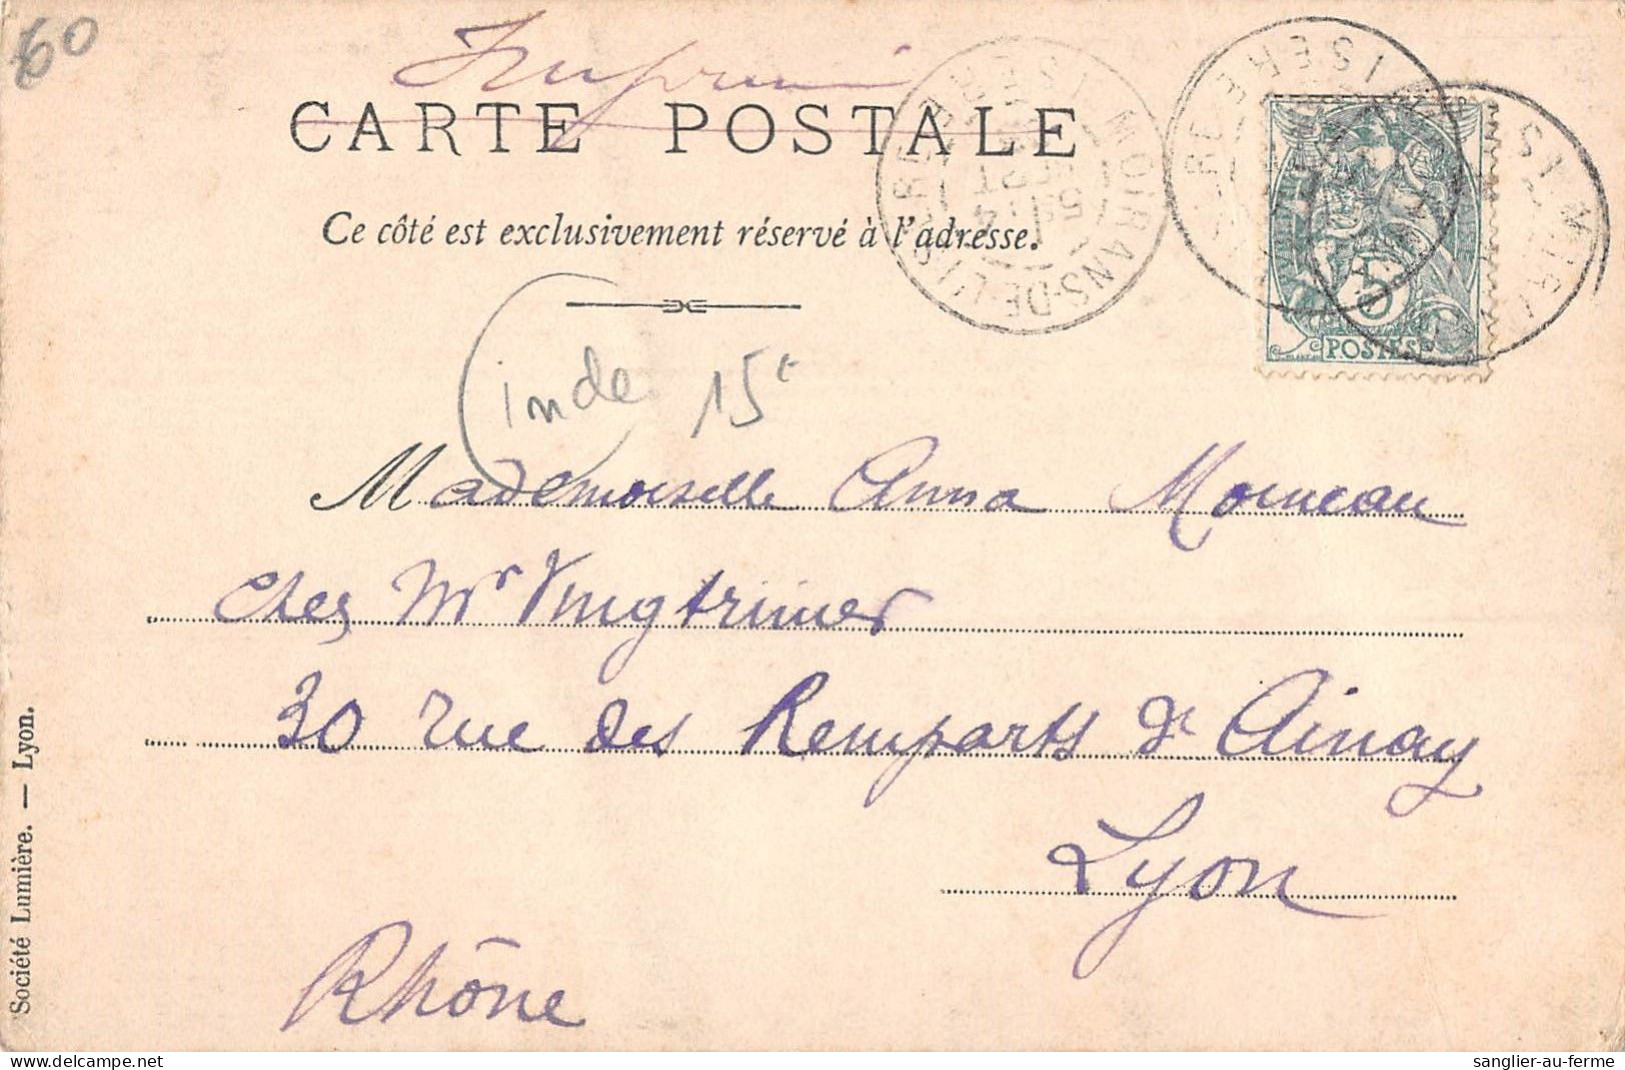 60
Imprimé
CARTE POSTALE
Ce côté est exclusivement réservé à l'adresse.
MOIRANS-DE-L'ISÈRE
ISERE
14
SEPT
5
POSTES
inde 15€
Mademoiselle Anna Morneau
Chez Mr Vingtrinier
30 rue des Remparts d'Ainay
Lyon
Rhône
Société Lumière. — Lyon.
sanglier-au-ferme